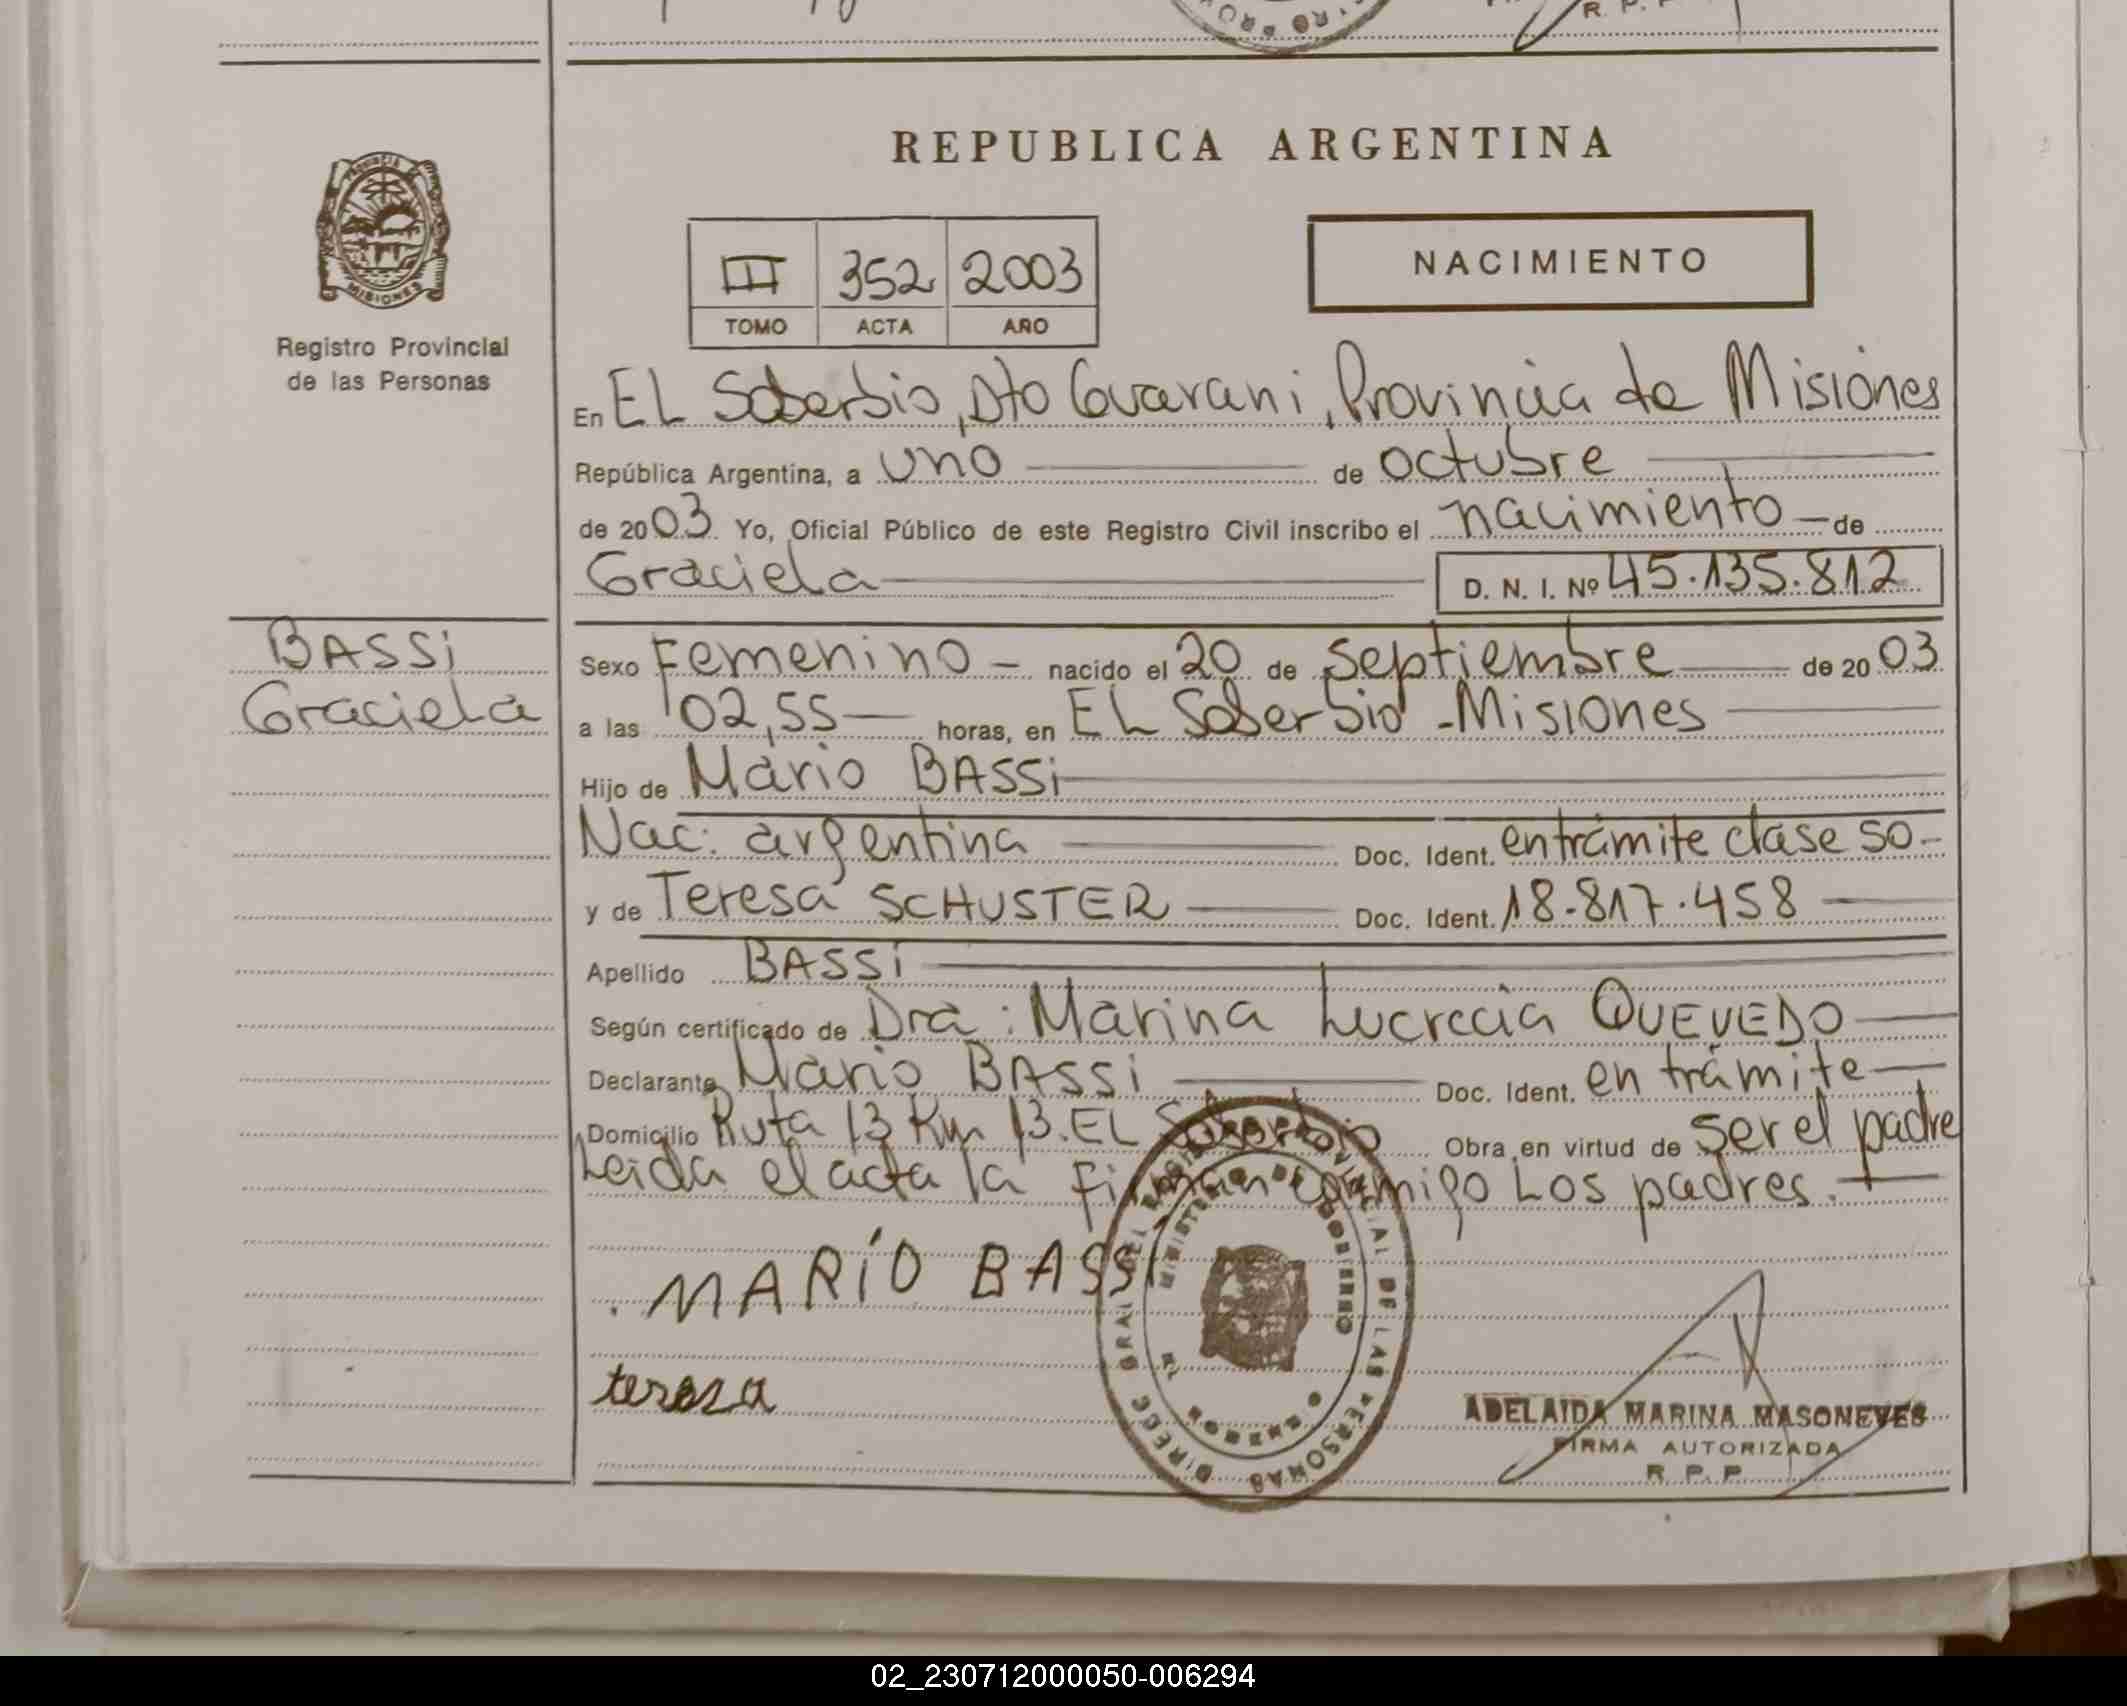 R. P. P
REPUBLICA ARGENTINA
PROVINCIA DE MISIONES
Registro Provincial
de las Personas
III 352 2003
TOMO ACTA AÑO
NACIMIENTO
En EL Soberbio, Dto Guarani, Provincia de Misiones
República Argentina, a uno de octubre
de 2003 Yo, Oficial Público de este Registro Civil inscribo el nacimiento de
Graciela D. N. I. Nº 45.135.812
BASSi
Graciela
Sexo Femenino - nacido el 20 de septiembre de 2003
a las 02,55 horas, en EL Soberbio - Misiones
Hijo de Mario BASSi
Nac: argentina Doc. Ident. en trámite clase 50-
y de Teresa SCHUSTER Doc. Ident. 18.817.458
Apellido BASSi
Según certificado de Dra: Marina Lucrecia QUEVEDO
Declarante Mario BASSi Doc. Ident. en trámite
Domicilio Ruta 13 Km 13. EL Soberbio Obra en virtud de ser el padre
Leida el acta la firman conmigo Los padres.
MARÍO BASSI
teresa
MINISTERIO DE GOBIERNO
MISIONES
ADELAIDA MARINA MASONEVES
FIRMA AUTORIZADA
R. P. P
02_230712000050-006294